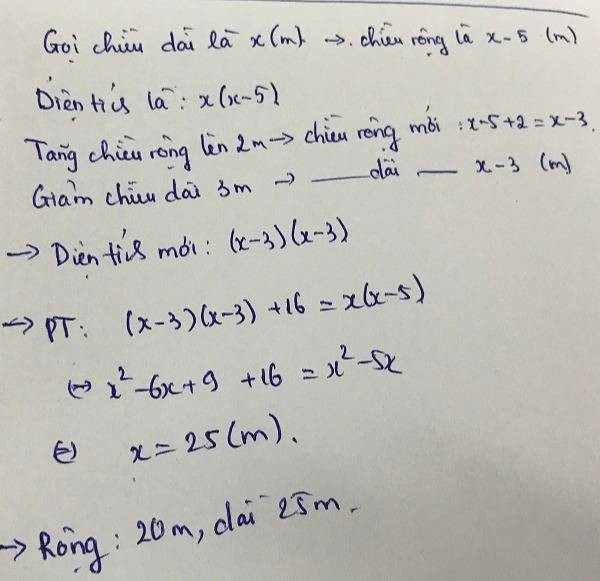 Gọi chiều dài là x (m). → chiều rộng là x-5 (m)
Diện tích là: x(x-5)
Tăng chiều rộng lên 2m → chiều rộng mới : x-5+2 = x-3.
Giảm chiều dài 3m → — dài — x-3 (m)
→ Diện tích mới: (x-3)(x-3)
↔ PT: (x-3)(x-3) +16 = x(x-5)
↔ x² -6x+9 +16 = x² -5x
↔ x = 25 (m).
→ Rộng: 20m, dài 25m.